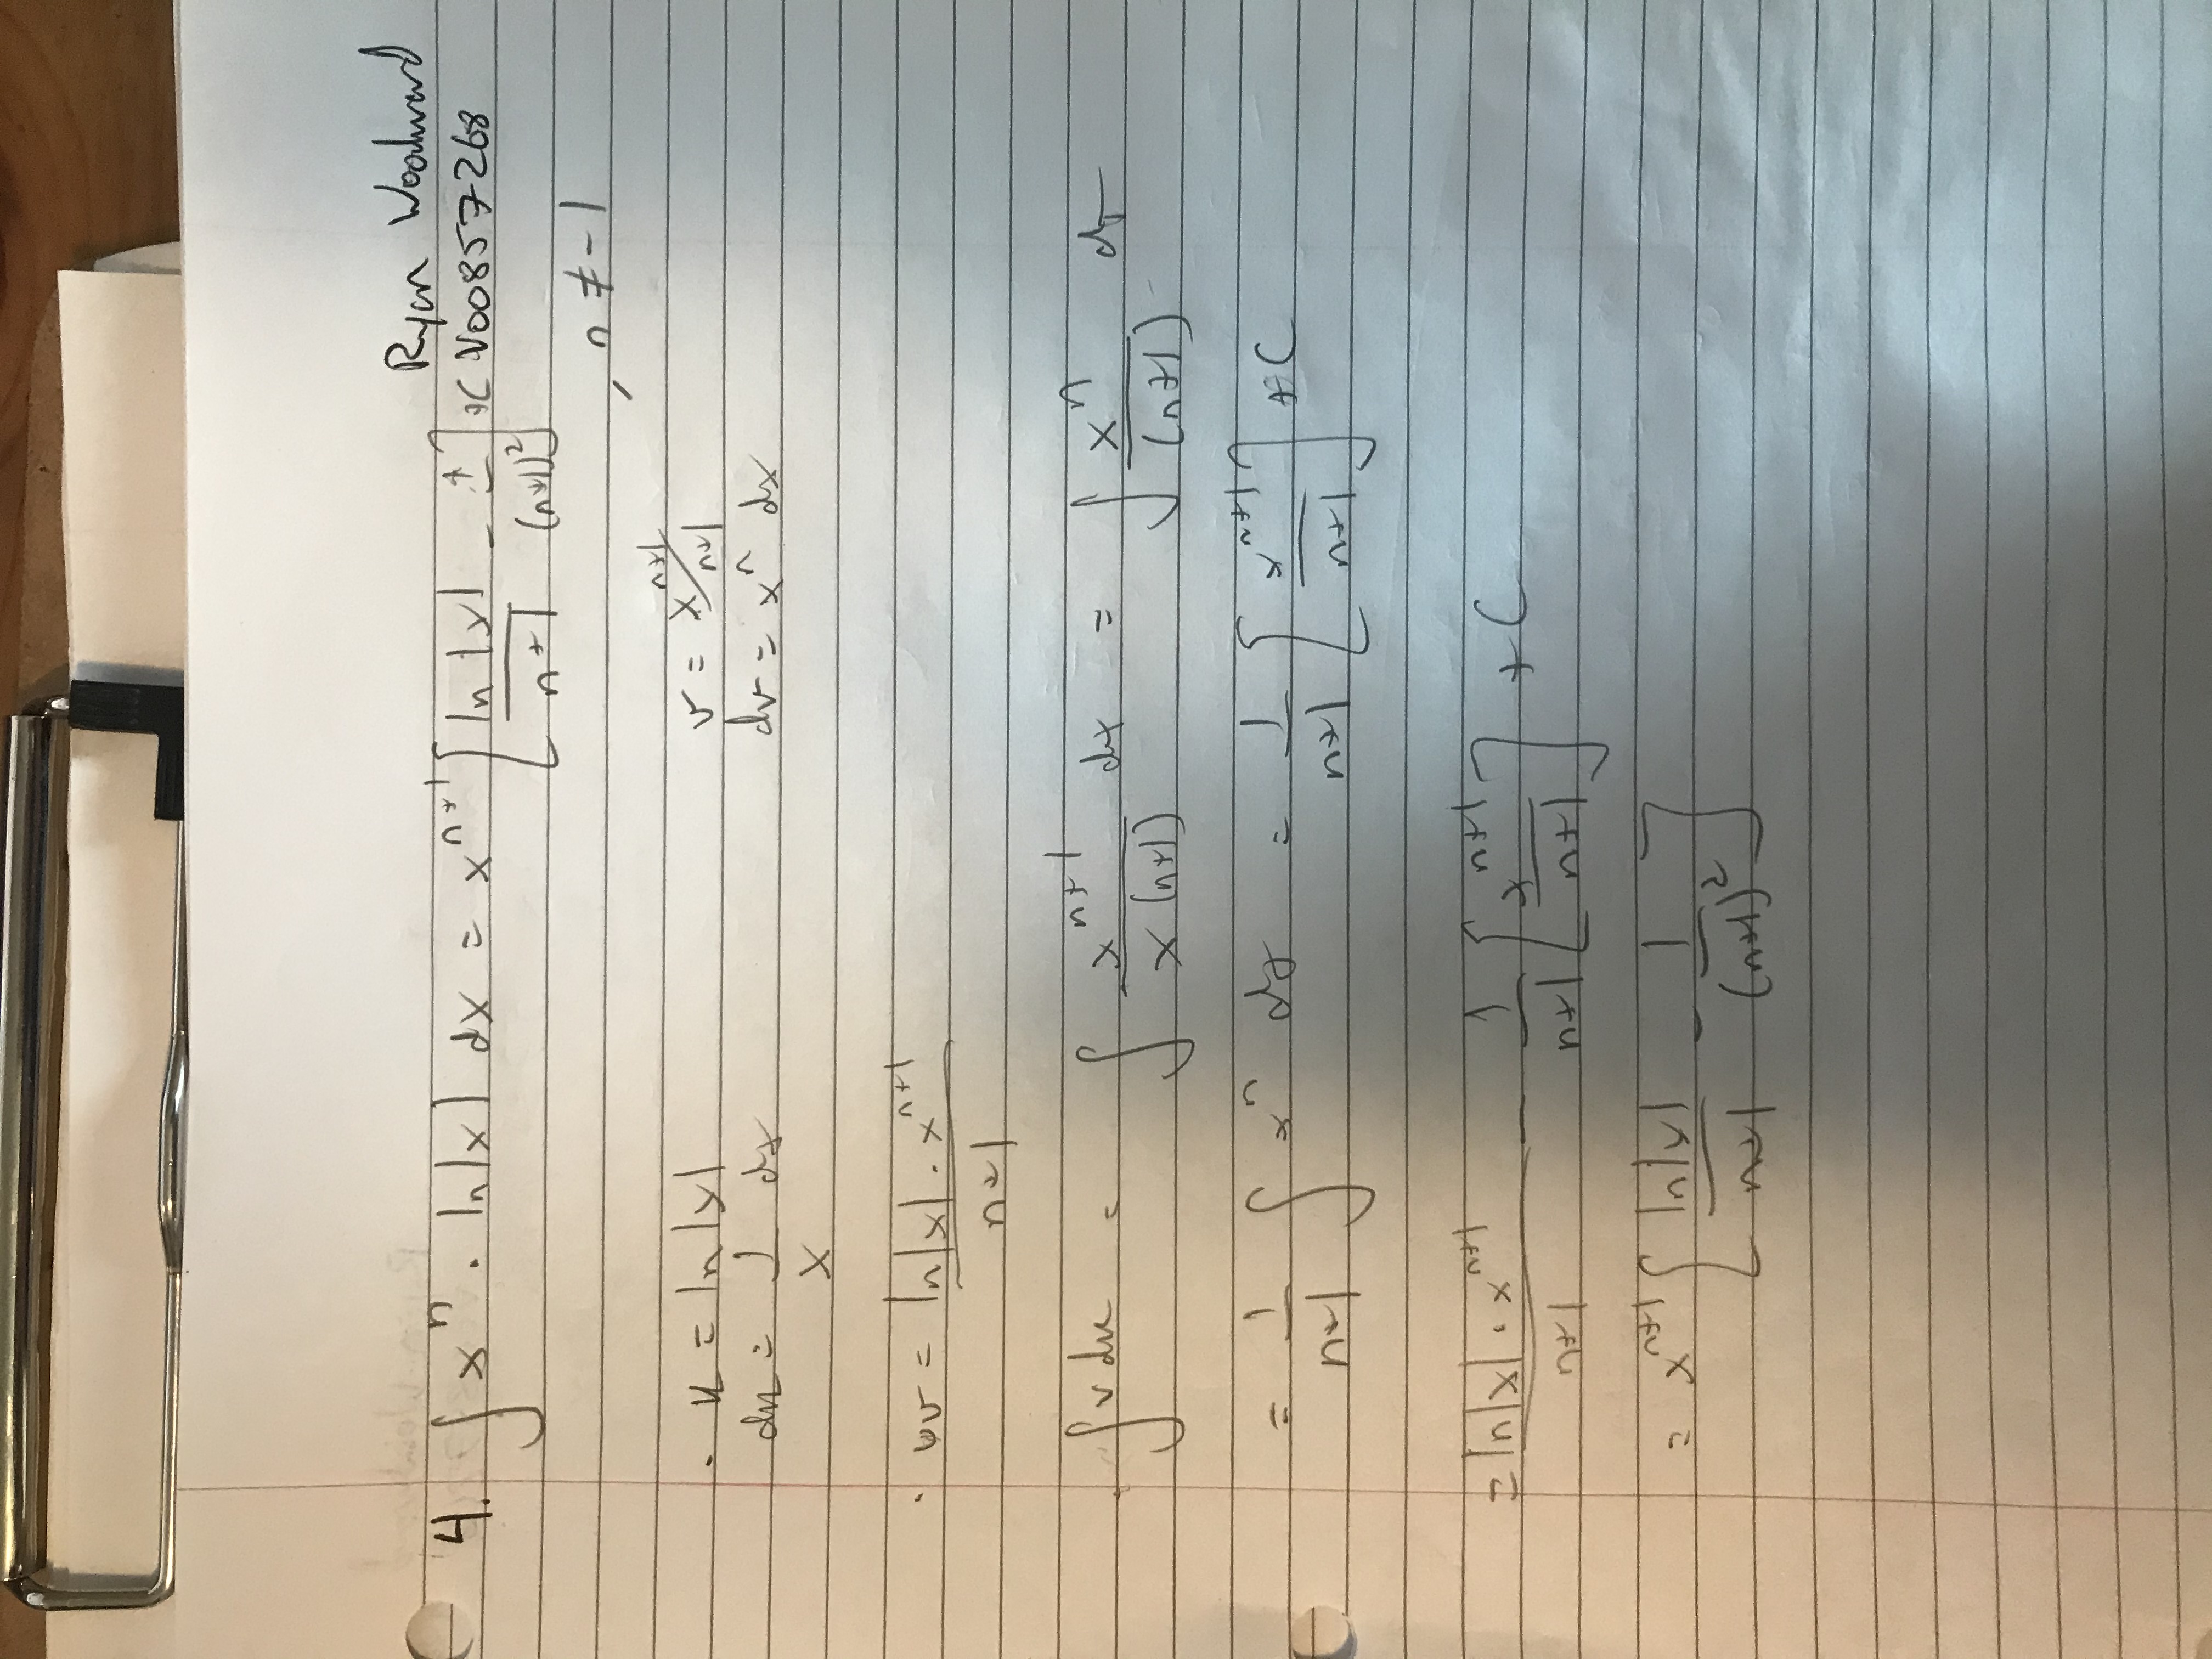 Ryan Woodward
4. ∫ x^n · ln|x| dx = x^(n+1) [ ln|x| / (n+1) - 1 / (n+1)^2 ] + C V00857268
, n ≠ -1
· u = ln|x| v = x^(n+1) / (n+1)
du = 1/x dx dv = x^n dx
· uv = ln|x| · x^(n+1) / (n+1)
· ∫ v du = ∫ x^(n+1) / (x (n+1)) dx = ∫ x^n / (n+1) dx
= 1/(n+1) ∫ x^n dx = 1/(n+1) [ x^(n+1) / (n+1) ] + C
= ln|x| · x^(n+1) / (n+1) - 1/(n+1) [ x^(n+1) / (n+1) ] + C
= x^(n+1) [ ln|x| / (n+1) - 1 / (n+1)^2 ]